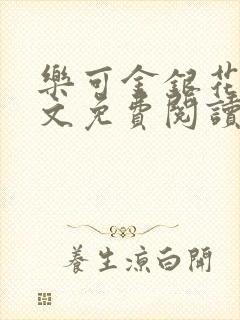 樂可金銀花
文免費閱讀
養生涼白開